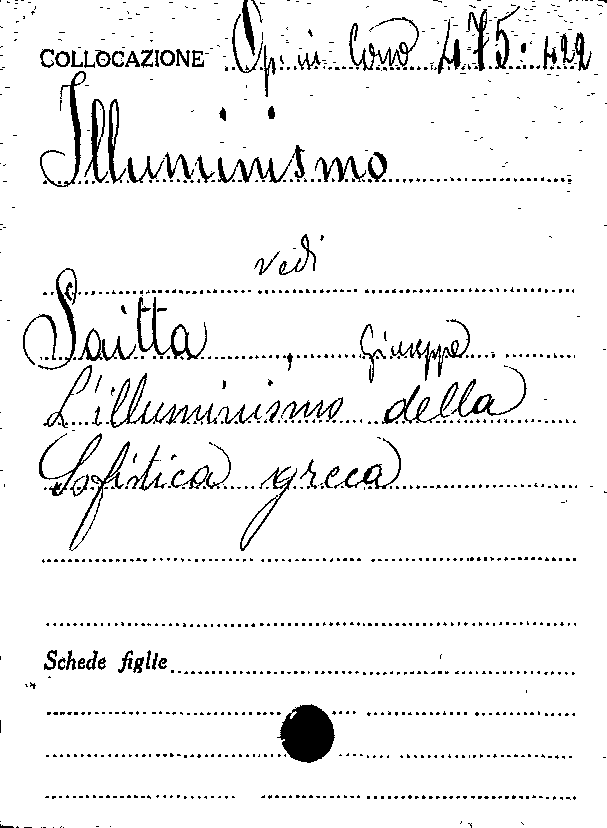 COLLOCAZIONE Op. in Cono 475.422
Illuminismo
vedi
Saitta, Giuseppe
L'illuminismo della
Sofistica greca
Schede figlie